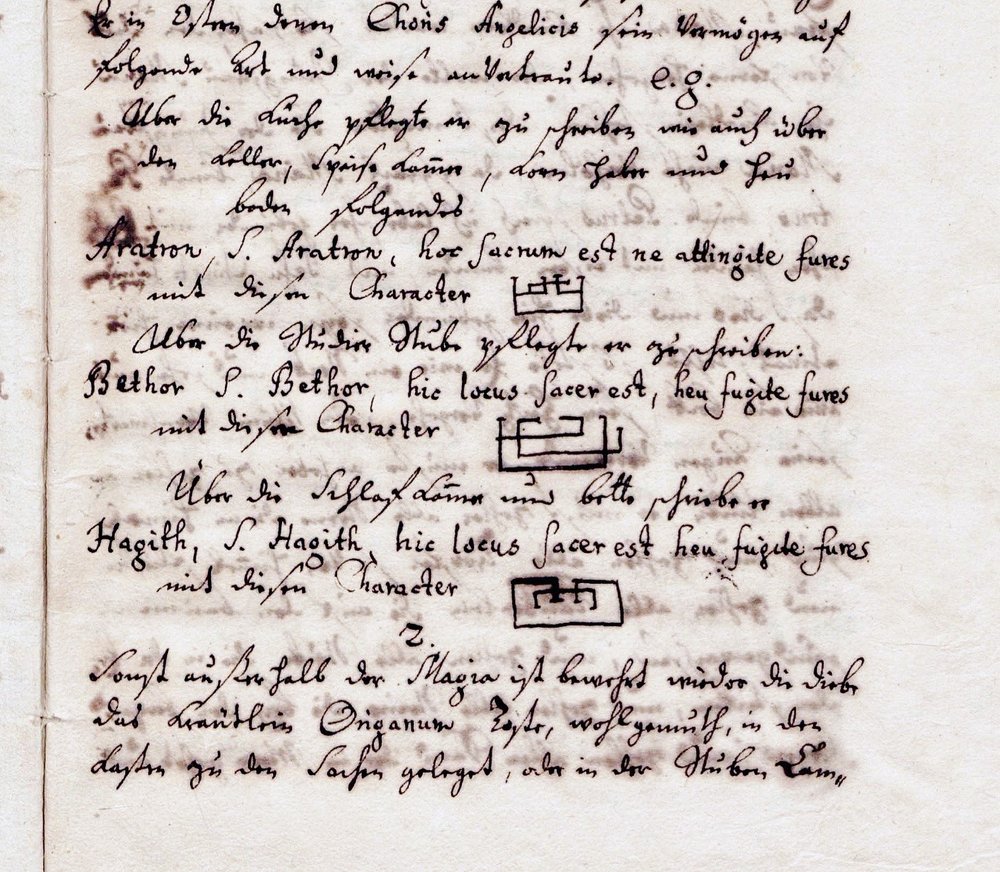 Er in Ostern denen Choris Angelicis sein Vermögen auf
folgende Art und weise anVertraute. e. g.
Uber die Küche pflegte er zu schreiben wie auch über
den Keller, Speise Kam̄er, Korn Haber und Heu
boden folgendes
Aratron, S. Aratron, hoc sacrum est ne attingite fures
mit diesen Character
Uber die Studier Stube pflegte er zu schreiben:
Bethor S. Bethor, hic locus sacer est, heu fugite fures
mit diesen Character
Über die Schlaf Kam̄er und bette schriebe er
Hagith, S. Hagith, hic locus sacer est heu fugite fures
mit diesen Character
2.
Sonst außerhalb der Magia ist bewehrt wieder die diebe
das Kräutlein Origanum Doste, wohlgemuth, in den
Kasten zu den Sachen geleget, oder in der Stuben Cam„